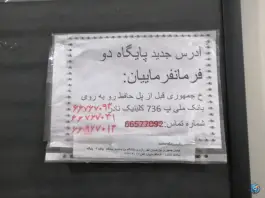 آدرس جدید پایگاه دو
فرمانفرماییان:
خ جمهوری قبل از پل حافظ رو به روی
بانک ملی پ 736 کلینیک نادر
شماره تماس: 66577092
۶۶۷۶۷۰۹۳
۶۶۷۶۷۰۳۱
۶۶۹۶۷۰۱۳